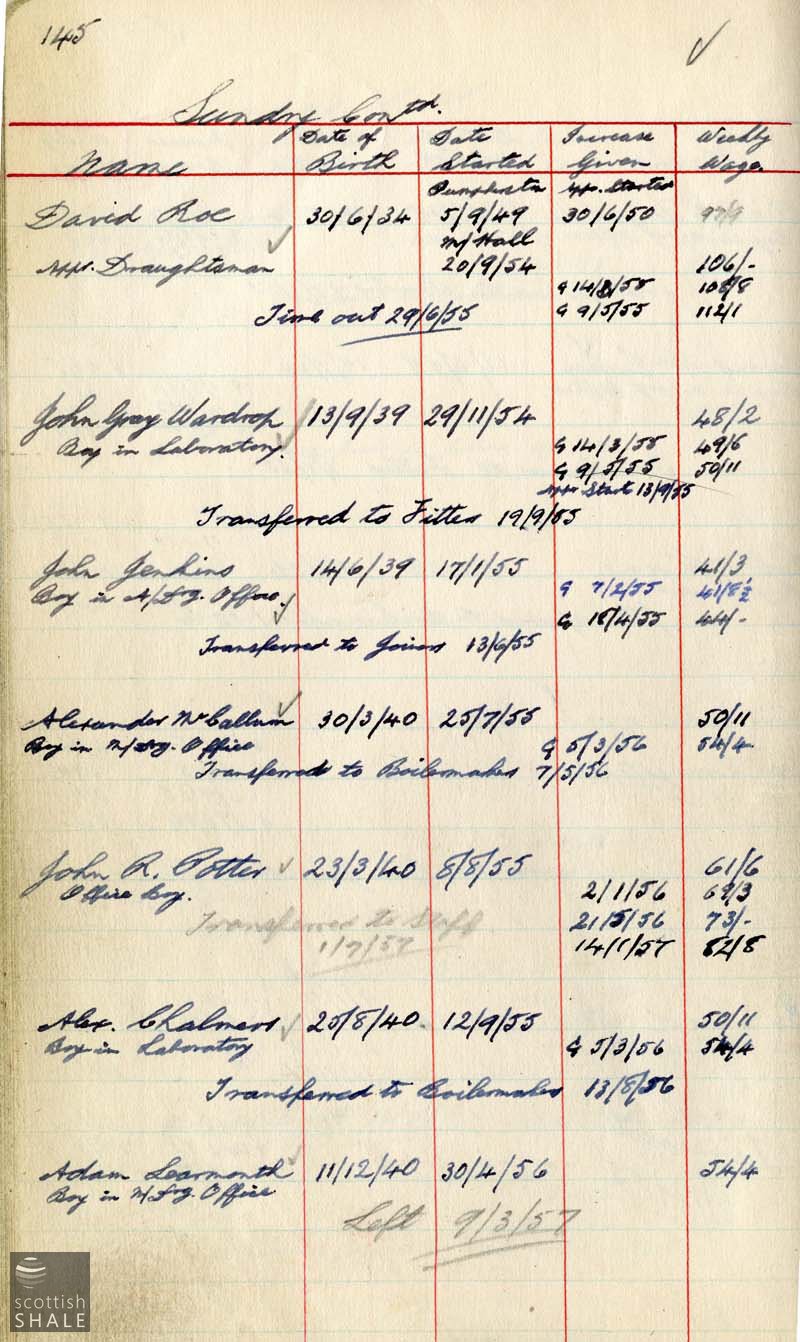 145
Sundry Contd.
Name Date of Birth Date Started Increase Given Weekly Wage.
Pumpherston App. Started
David Roe 30/6/34 5/9/49 30/6/50 97/9
M/Hall
Appr. Draughtsman 20/9/54 106/-
G 14/3/55 108/8
Time out 29/6/55 G 9/5/55 112/1
John Gray Wardrop 13/9/39 29/11/54 48/2
Boy in Laboratory. G 14/3/55 49/6
G 9/5/55 50/11
Appr Start 13/9/55
Transferred to Fitters 19/9/55
John Jenkins 14/6/39 17/1/55 41/3
Boy in Office. G 7/2/55 41/8½
G 18/4/55 44/-
Transferred to Joiners 13/6/55
Alexander McCallum 30/3/40 25/7/55 50/11
Boy in Office G 5/3/56 54/4
Transferred to Boilermakers 7/5/56
John R. Potter 23/3/40 8/8/55 61/6
Office Boy. 2/1/56 69/3
Transferred to Staff 21/5/56 73/-
1/7/57 14/1/57 82/8
Alex. Chalmers 25/8/40 12/9/55 50/11
Boy in Laboratory G 5/3/56 54/4
Transferred to Boilermakers 13/8/56
Adam Learmonth 11/12/40 30/4/56 54/4
Boy in Office
Left 9/3/57
scottish
SHALE